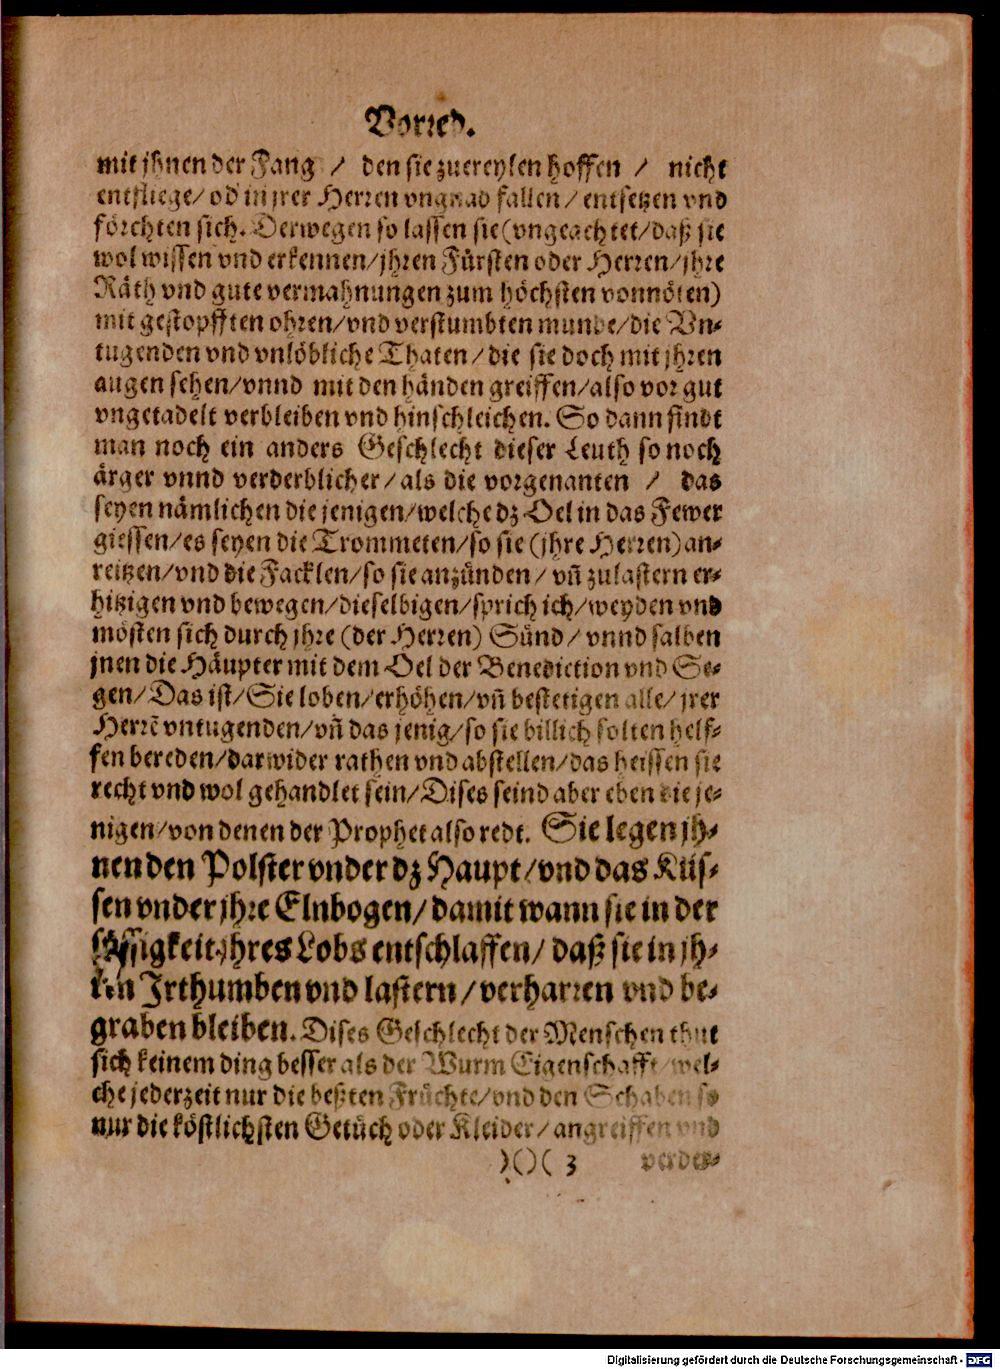 Vorred.
mit jhnen der Fang / den sie zuereylen hoffen / nicht
entfliege/ od in jrer Herren vngnad fallen/ entsetzen vnd
förchten sich. Derwegen so lassen sie (vngeachtet/ daß sie
wol wissen vnd erkennen/ jhren Fürsten oder Herren/ jhre
Räth vnd gute vermahnungen zum höchsten vonnöten)
mit gestopfften ohren/ vnd verstumbten munde/ die Vn-
tugenden vnd vnlöbliche Thaten/ die sie doch mit jhren
augen sehen/ vnnd mit den händen greiffen/ also vor gut
vngetadelt verbleiben vnd hinschleichen. So dann findt
man noch ein anders Geschlecht dieser Leuth so noch
ärger vnnd verderblicher/ als die vorgenanten / das
seyen nämlichen die jenigen/ welche dz Oel in das Fewer
giessen/ es seyen die Trommeten/ so sie (jhre Herren) an-
reitzen/ vnd die Facklen/ so sie anzünden/ vñ zu lastern er-
hitzigen vnd bewegen/ dieselbigen/ sprich ich/ weyden vnd
mösten sich durch jhre (der Herren) Sünd/ vnnd salben
jnen die Häupter mit dem Oel der Benediction vnd Se-
gen/ Das ist/ Sie loben/ erhöhen/ vñ bestetigen alle/ jrer
Herrē vntugenden/ vñ das jenig/ so sie billich solten helf-
fen bereden/ darwider rathen vnd abstellen/ das heissen sie
recht vnd wol gehandlet sein/ Dises seind aber eben die je-
nigen/ von denen der Prophet also redt. Sie legen jh-
nen den Polster vnder dz Haupt/ vnd das Küs-
sen vnder jhre Elnbogen/ damit wann sie in der
süssigkeit jhres Lobs entschlaffen/ daß sie in jh-
ren Irthumben vnd lastern/ verharren vnd be-
graben bleiben. Dises Geschlecht der Menschen thut
sich keinem ding besser als der Wurm Eigenschafft/ wel-
che jederzeit nur die beßten Früchte/ vnd den Schaben so
nur die köstlichsten Getüch oder Kleider/ angreiffen vnd
)()( 3 verder-
Digitalisierung gefördert durch die Deutsche Forschungsgemeinschaft - DFG